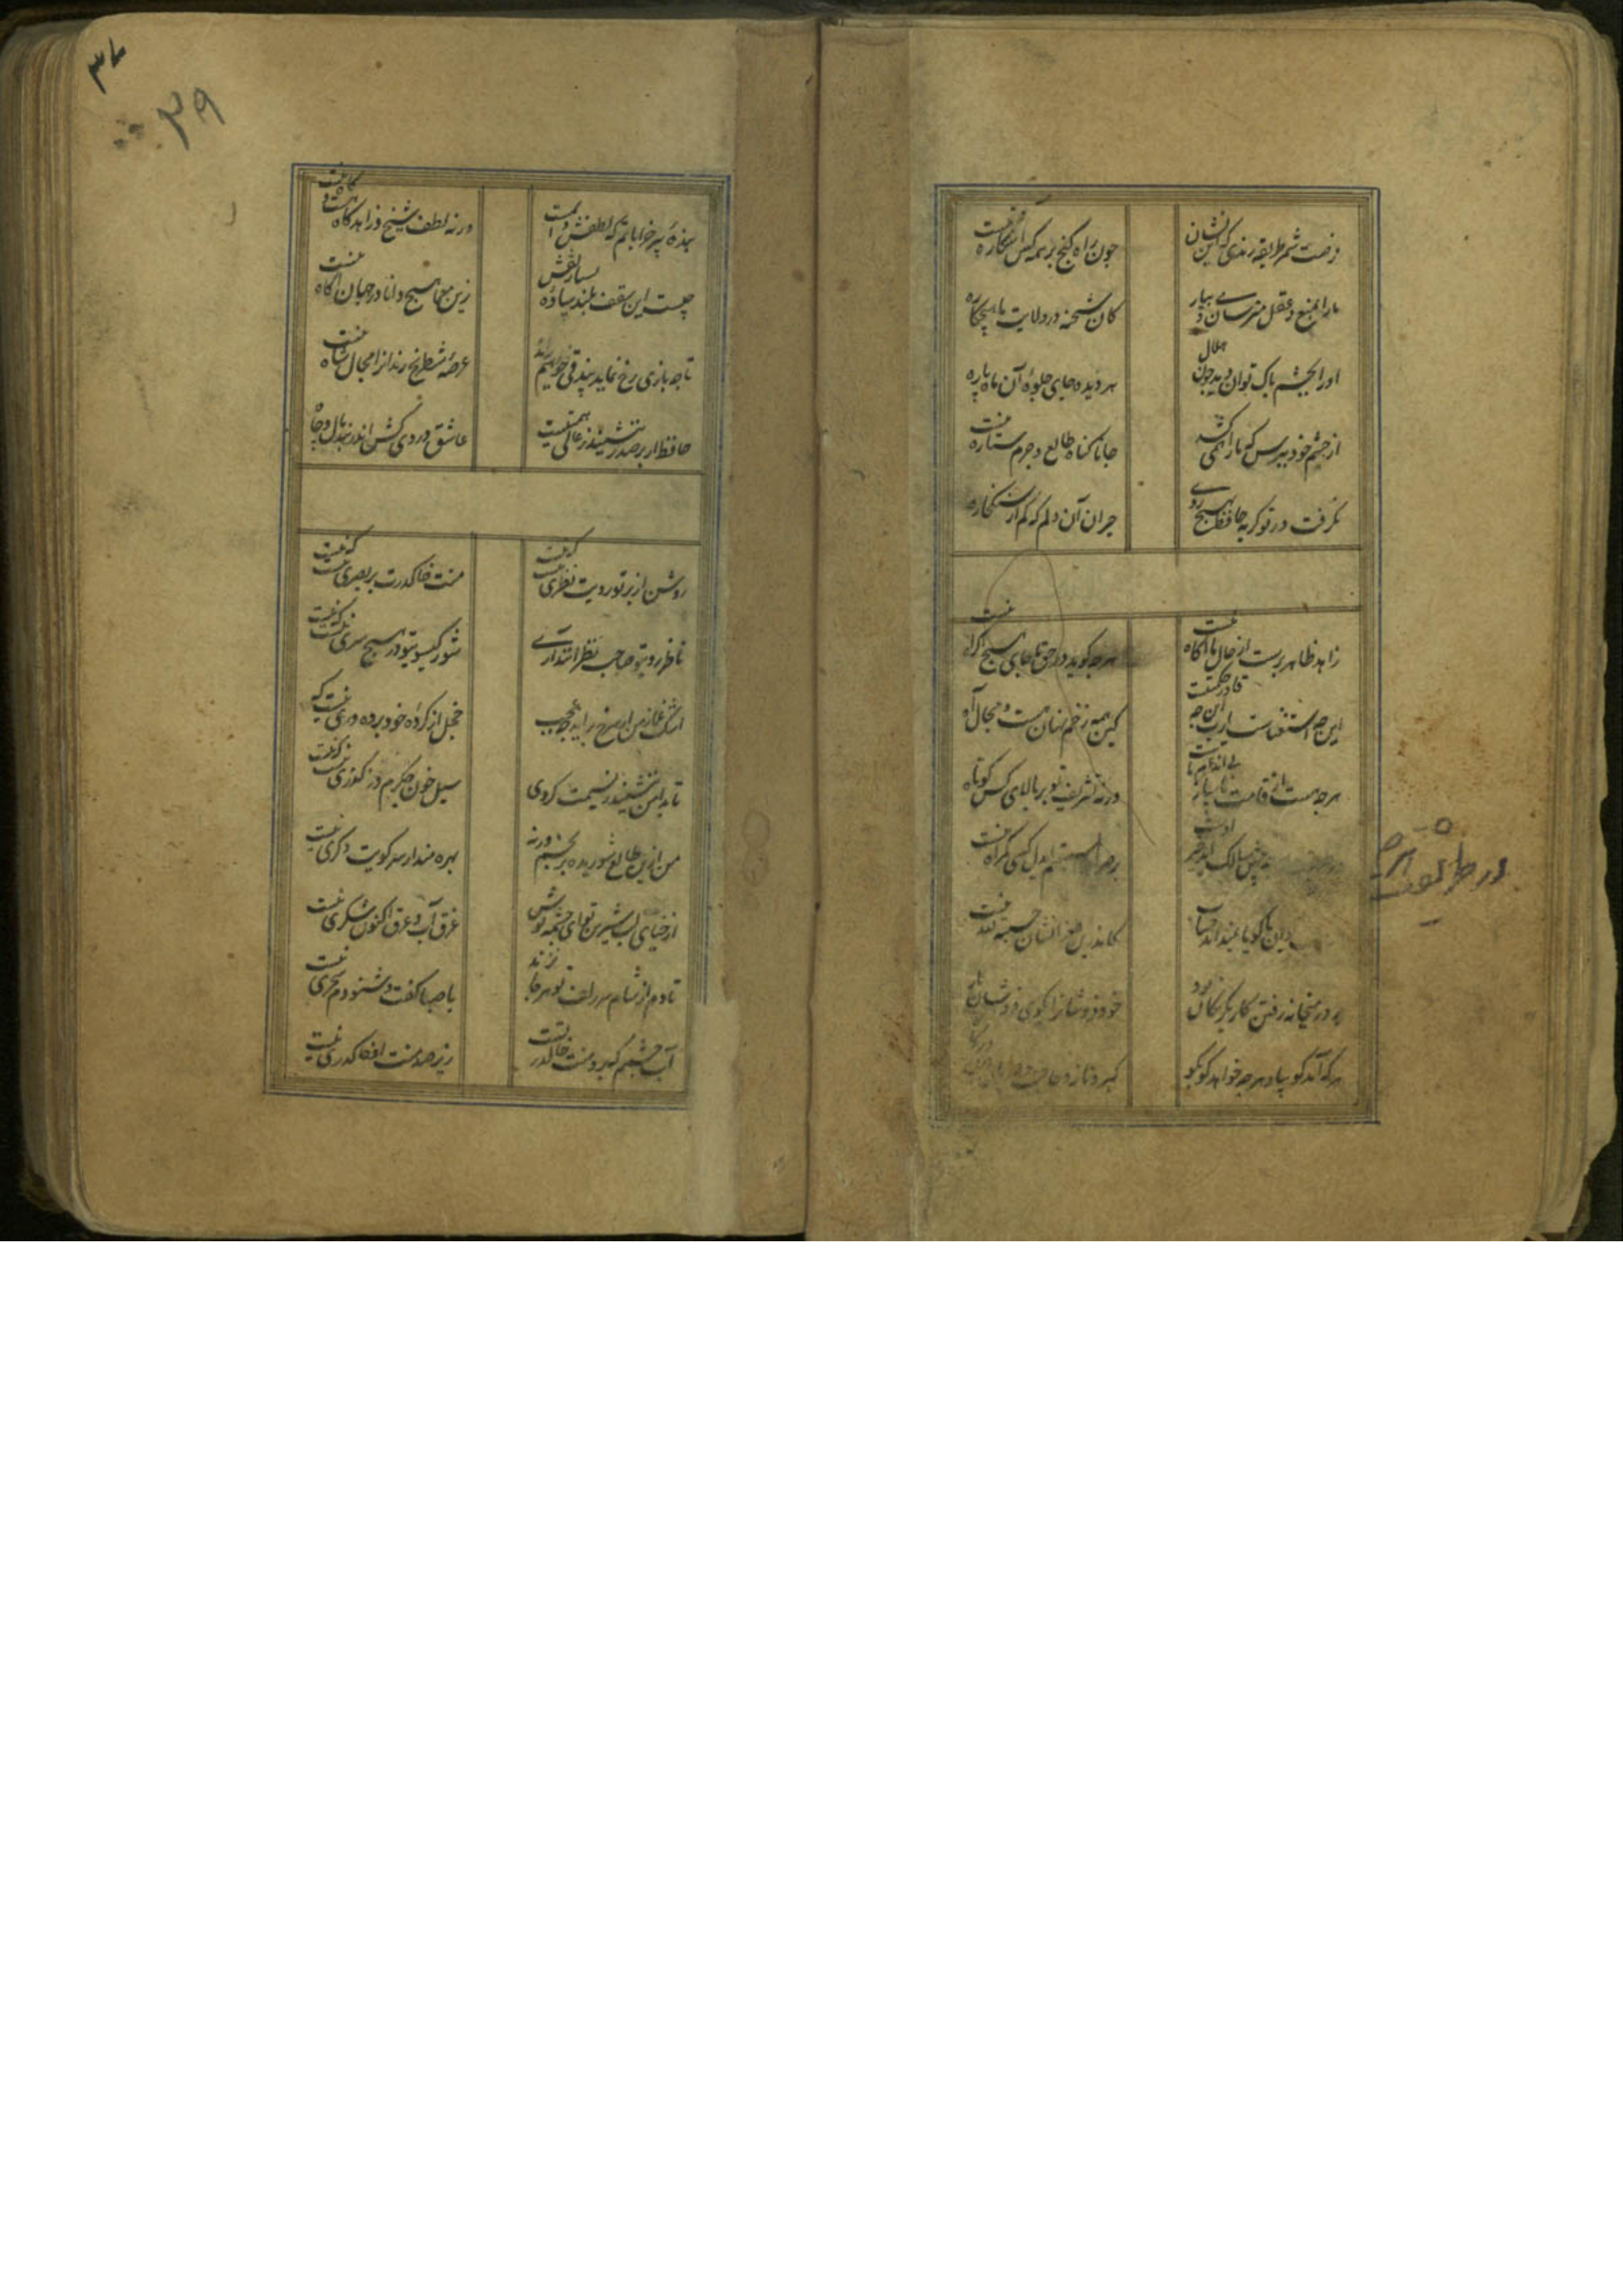 فرصت شمر طریقه رندی که این نشان چون راه گنج بر همه کس اشکاره نیست
ما را بمنع عقل مترسان و می بیار کان شحنه در ولایت ما هیچکاره
او را بچشم پاک توان دید چون هلال هر دیده جای جلوه آن ماه پاره
از چشم خود بپرس که ما را که می کشد جانا گناه طالع و جرم ستاره نیست
نگرفت در تو گریه حافظ بهیچ روی حیران آن دلم که کم از سنگ خاره
زاهد ظاهر پرست از حال ما آگاه نیست هرچه گوید در حق ما جای هیچ اکراه نیست
این چه استغناست یارب این چه قادر حکمتست کین همه زخم نهان هست و مجال آه
هرچه هست از قامت ناساز بی اندام ماست ورنه تشریف تو بر بالای کس کوتاه
پیش سالک آید خیر اوست بر صراط مستقیم ای دل کسی گمراه نیست
در طریقت هرچه
دیوان ما گویا نمیداند حساب کاندرین طغرا نشان حسبة لله نیست
بر در میخانه رفتن کار یکرنگان بود خود فروشان را بکوی می فروشان راه
هرکه آید گو بیا و هرچه خواهد گو بگو کبر و ناز و حاجب و دربان
۳۷
۳۹
بنده پیر خراباتم که لطفش دایمست ورنه لطف شیخ و زاهد گاه هست و گاه نیست
چیست این سقف بلند ساده بسیار نقش زین معما هیچ دانا در جهان آگاه نیست
تا چه بازی رخ نماید بیدقی خواهیم راند عرصه شطرنج رندان را مجال شاه نیست
حافظ ار بر صدر ننشیند ز عالی همتیست عاشق دردی کش اندر بند مال و جاه
روشن از پرتو رویت نظری نیست که نیست منت خاک درت بر بصری نیست که نیست
ناظر روی تو صاحب نظرانند آری شور گیسوی تو در هیچ سری نیست که نیست
اشک غماز من ار سرخ برآید چه عجب خجل از کرده خود پرده دری نیست که
تا بدامن ننشیند ز نسیمت گردی سیل خون جگرم در گذری نیست که نیست
من ازین طالع شوریده برنجم ورنه بهره مند از سر کویت دگری نیست
از حیای لب شیرین تو ای چشمه نوش غرق آب و عرق اکنون شکری نیست
تا دم از شام سر زلف تو هرجا نزند با صبا گفت و شنودم سحری نیست
آب چشمم که برو منت خاک در تست زیر صد منت او خاک دری نیست